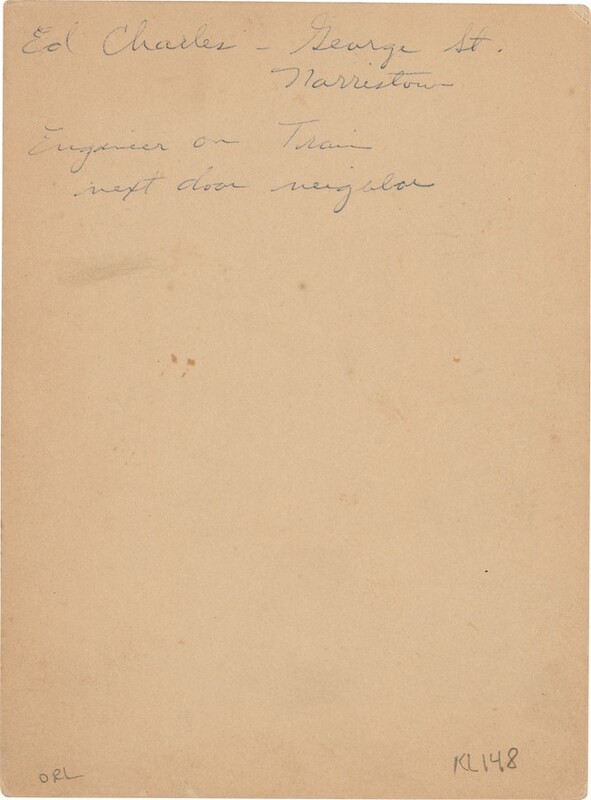 Ed Charles - George St.
Narristown
Engineer on Train
next door neighbor
ORL
KL148